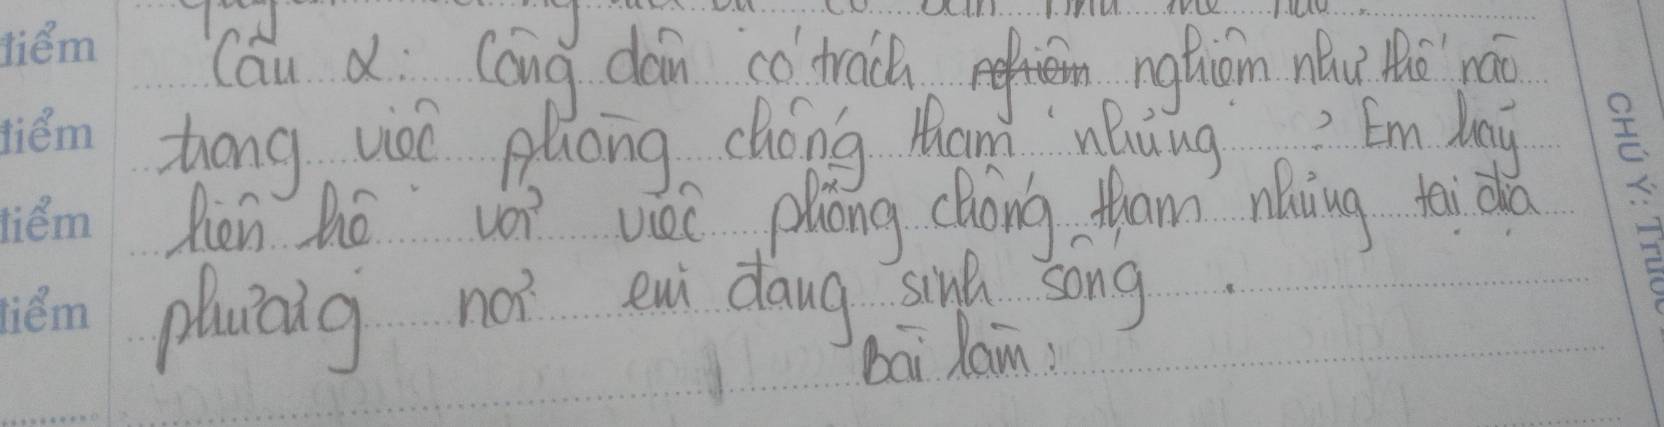 Câu 2: Công dân có trách nghiệm như thế nào
điểm
trong việc phòng chống tham nhũng ? Em hãy
điểm
liên hệ với việc phòng chống tham nhũng tại địa
điểm
phương nơi em đang sinh sống .
điểm
Bài làm:
CHÚ Ý: